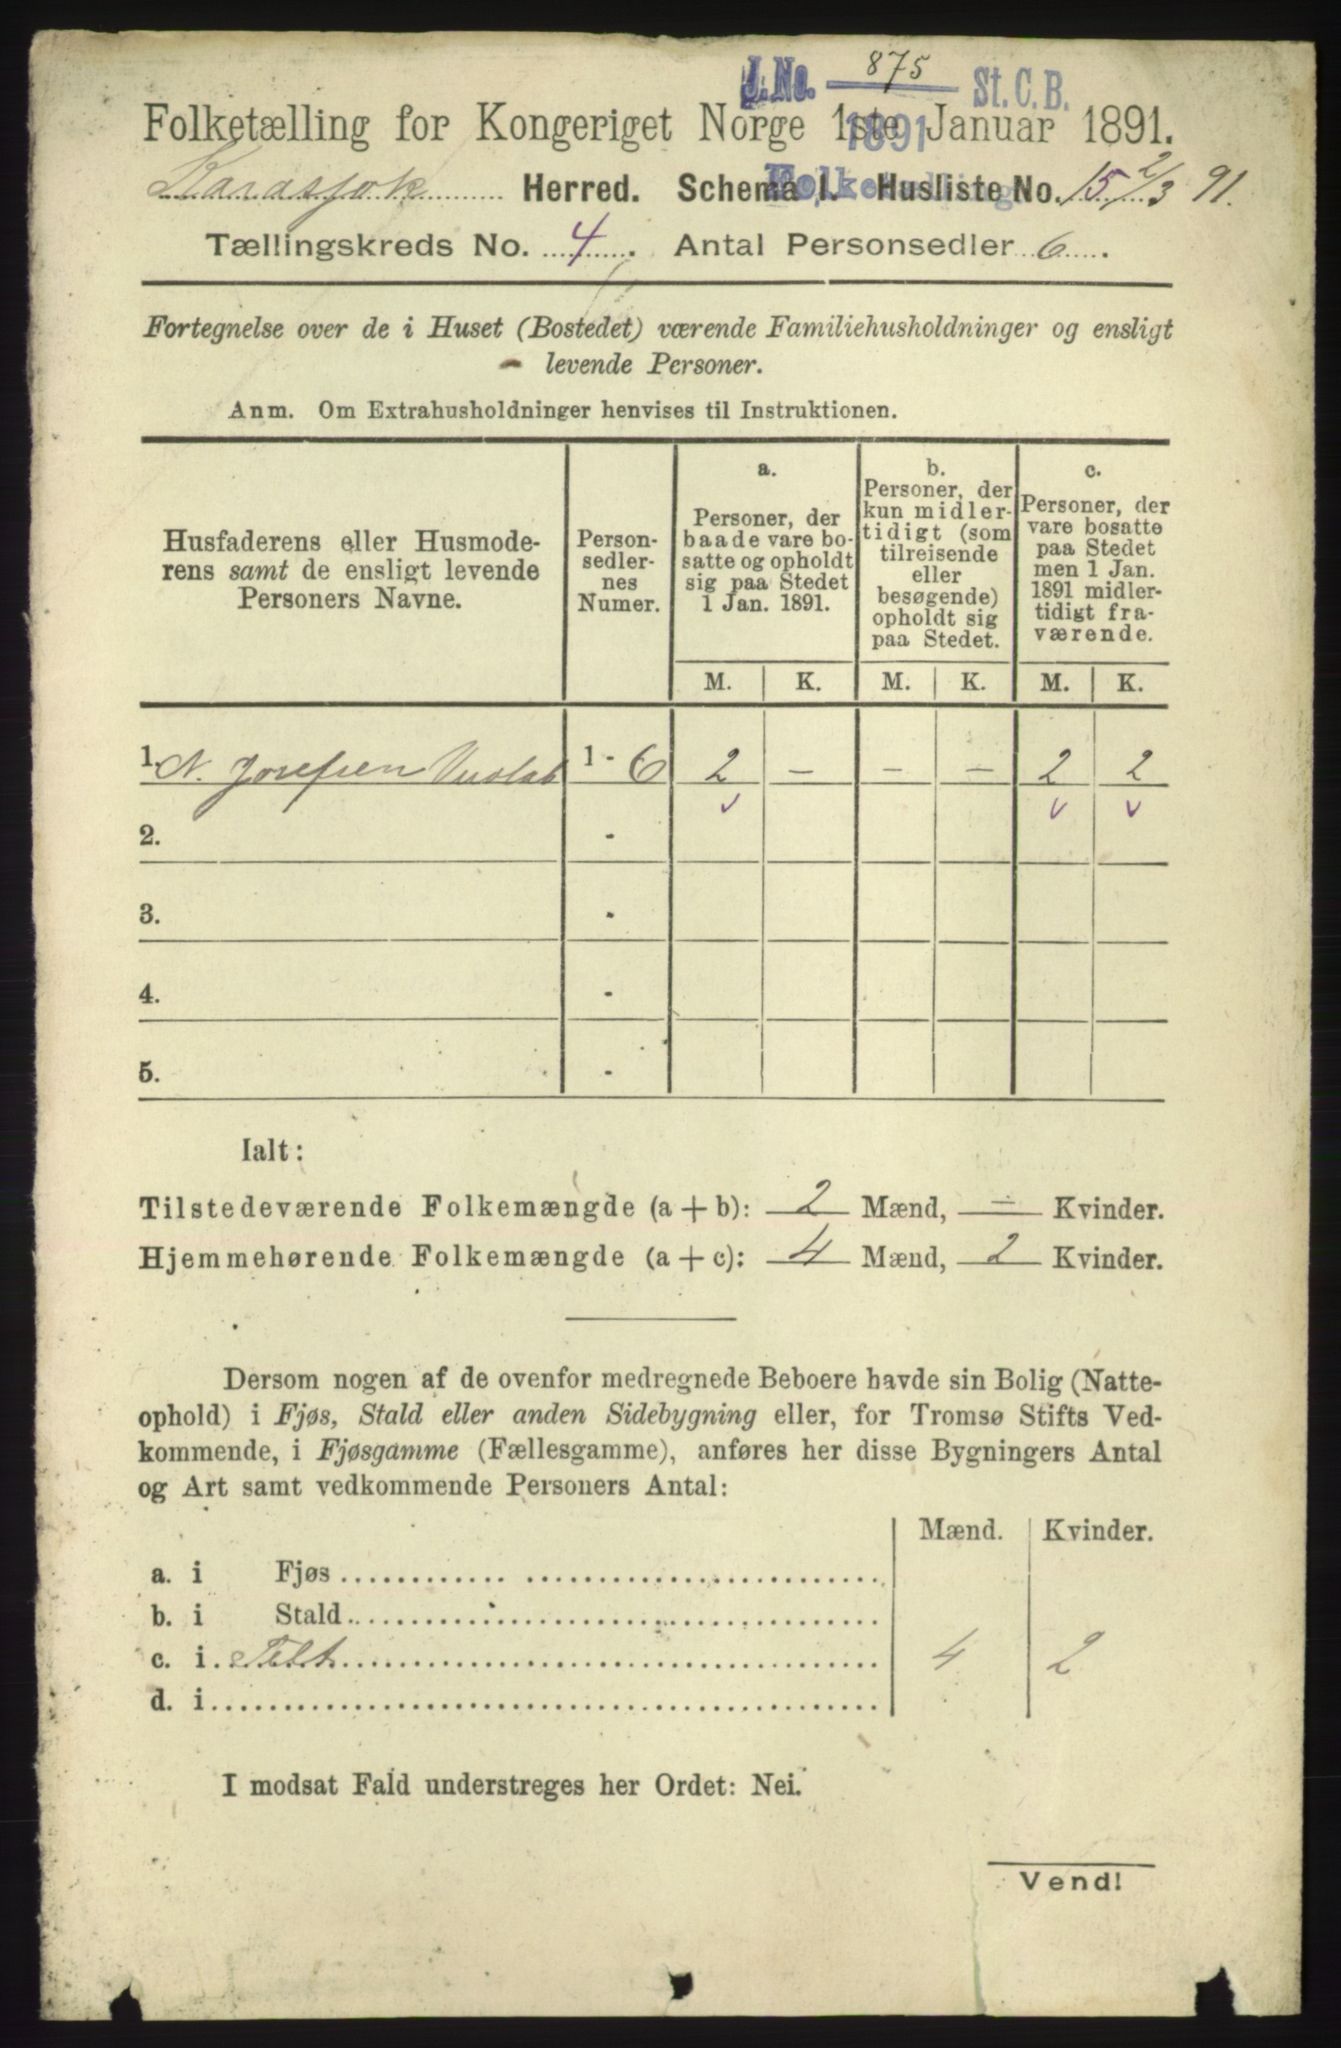 J.No. 875 St. C. B.
1891
Folketælling for Kongeriget Norge 1ste Januar 1891.
Karasjok Herred. Schema I. Husliste No. 15 2/3 91.
Tællingskreds No. 4. Antal Personsedler 6.
Fortegnelse over de i Huset (Bostedet) værende Familiehusholdninger og ensligt
levende Personer.
Anm. Om Extrahusholdninger henvises til Instruktionen.
Husfaderens eller Husmode-
rens samt de ensligt levende
Personers Navne.
Person-
sedler-
nes
Numer.
a.
Personer, der
baade vare bo-
satte og opholdt
sig paa Stedet
1 Jan. 1891.
b.
Personer, der
kun midler-
tidigt (som
tilreisende
eller
besøgende)
opholdt sig
paa Stedet.
c.
Personer, der
vare bosatte
paa Stedet
men 1 Jan.
1891 midler-
tidigt fra-
værende.
M. K. M. K. M. K.
1. N. Josefsen 1 - 6 2 - - - 2 2
2. -
3. -
4. -
5. -
Ialt:
Tilstedeværende Folkemængde (a + b): 2 Mænd, - Kvinder.
Hjemmehørende Folkemængde (a + c): 4 Mænd, 2 Kvinder.
Dersom nogen af de ovenfor medregnede Beboere havde sin Bolig (Natte-
ophold) i Fjøs, Stald eller anden Sidebygning eller, for Tromsø Stifts Ved-
kommende, i Fjøsgamme (Fællesgamme), anføres her disse Bygningers Antal
og Art samt vedkommende Personers Antal:
Mænd. Kvinder.
a. i Fjøs
b. i Stald
c. i Telt 4 2
d. i
I modsat Fald understreges her Ordet: Nei.
Vend!